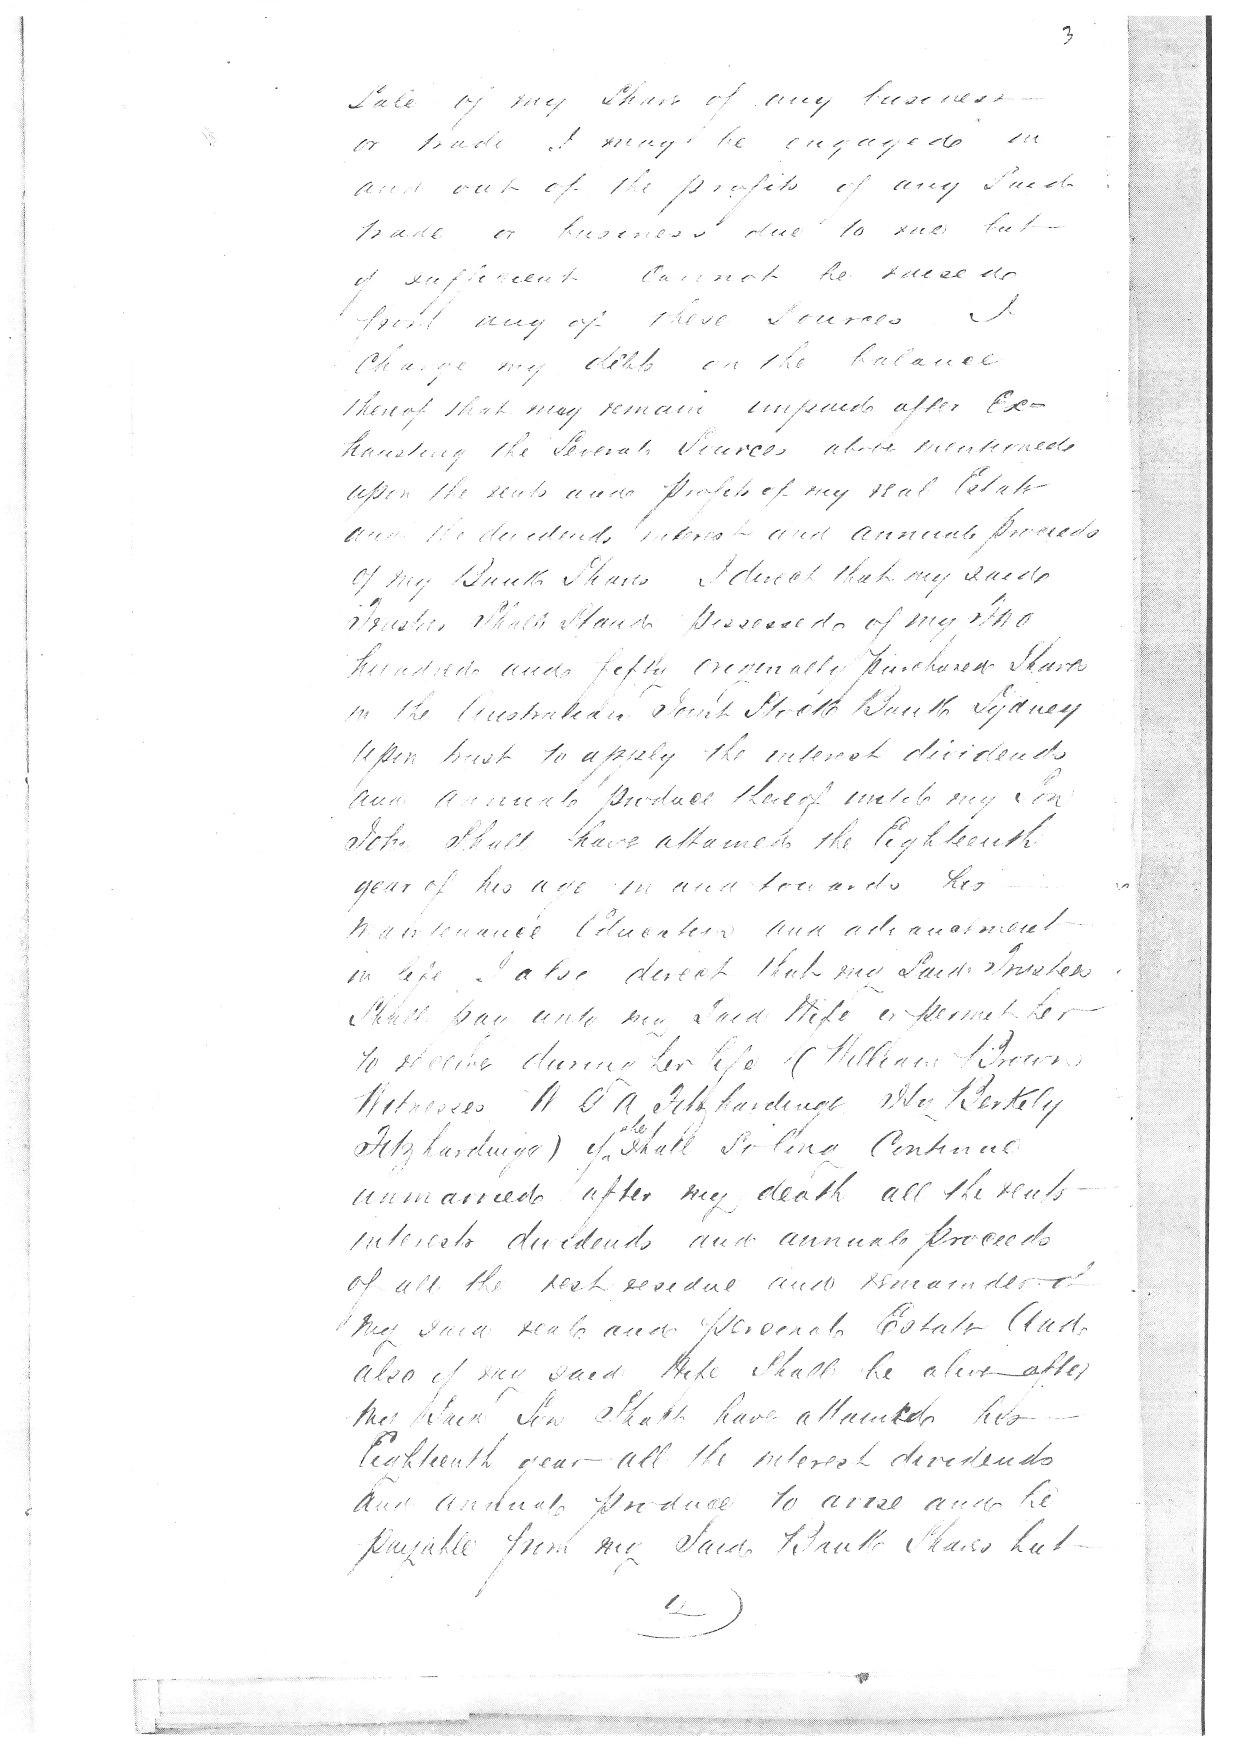 3
Sale of my Share of any business
or trade I may be engaged in
and out of the profits of any Said
trade or business due to me but
if sufficient cannot be raised
from any of these Sources I
Charge my debts on the balance
thereof that may remain unpaid after Ex=
hausting the Several Sources above mentioned
upon the rents and profits of my real Estate
and the dividends interest and annual proceeds
of my Bank Shares I direct that my said
Trustees Shall Stand possessed of my two
hundred and fifty originally purchased Shares
in the Australian Joint Stock Bank Sydney
Upon trust to apply the interest dividends
and annual produce thereof until my Son
John Shall have attained the Eighteenth
year of his age in and towards his
maintenance Education and advancement
in life I also direct that my Said Trustees
Shall pay unto my Said Wife or permit her
to receive during her life (William Brown
Witnesses W G A Fitzhardinge Hy Berkely
Fitzhardinge) if she Shall So long Continue
unmarried after my death all the rents
interests dividends and annual proceeds
of all the rest residue and remainder of
my said real and personal Estate And
also if my said Wife Shall be alive after
my Said Son Shall have attained his
Eighteenth year all the interest dividends
and annual produce to arise and be
payable from my Said Bank Shares but